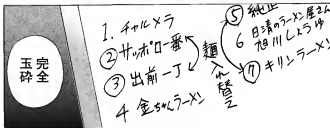 1. チャルメラ
② サッポロ一番
③ 出前一丁
4 金ちゃんラーメン
麺入れ替え
⑤ 純正
6 日清のラーメン屋さん
旭川しょうゆ
⑦ キリンラーメン
完全
玉砕